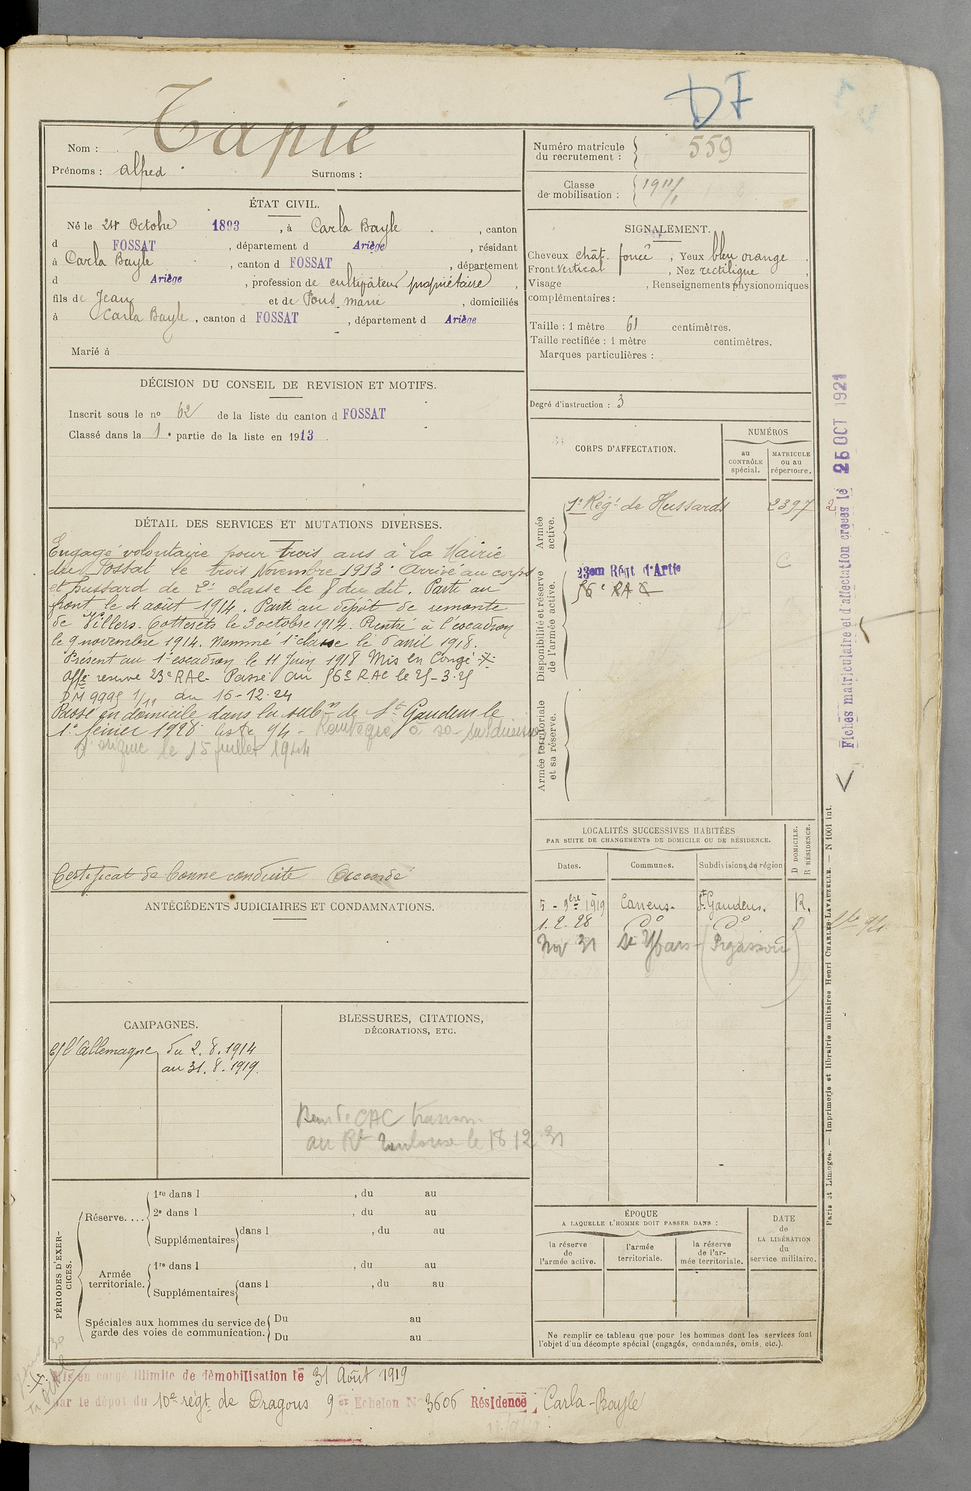 DF
Tapie
Nom :
Prénoms : alfred Surnoms :
Numéro matricule
du recrutement : 559
Classe
de mobilisation : 1911/1
ÉTAT CIVIL.
Né le 24 Octobre 1893, à Carla Bayle, canton
d FOSSAT, département d Ariège, résidant
à Carla Bayle, canton d FOSSAT, département
d Ariège, profession de cultivateur propriétaire,
fils de Jean et de Pons marie, domiciliés
à Carla Bayle, canton d FOSSAT, département d Ariège
Marié à
SIGNALEMENT.
Cheveux chât. foncé, Yeux bleu orange
Front Vertical, Nez rectiligne,
Visage , Renseignements physionomiques
complémentaires :
Taille : 1 mètre 61 centimètres.
Taille rectifiée : 1 mètre centimètres.
Marques particulières :
Degré d'instruction : 3
DÉCISION DU CONSEIL DE REVISION ET MOTIFS.
Inscrit sous le no 62 de la liste du canton d FOSSAT
Classé dans la 1e partie de la liste en 1913
CORPS D'AFFECTATION.
NUMÉROS
au
CONTRÔLE
spécial.
MATRICULE
ou au
répertoire.
Armée
active.
1e Régt de Hussards 2397
Disponibilité et réserve
de l'armée active.
23em Régt d'Artie
56e RAC
Armée territoriale
et sa réserve.
DÉTAIL DES SERVICES ET MUTATIONS DIVERSES.
Engagé volontaire pour trois ans à la Mairie
du Fossat le trois Novembre 1913. Arrivé au corps
et hussard de 2e classe le 8 du dit. Parti au
front le 4 août 1914. Parti au dépôt de remonte
de Villers. Cotterets le 3 octobre 1914. Rentré à l'escadron
le 9 novembre 1914. Nommé 1e classe le 6 avril 1918.
Présent au 1e escadron le 11 Juin 1918 Mis en Congé
Affé réserve 23e RAC. Passé au 56e RAC le 25-3-25
DM 9995 1/11 du 16-12-24
Passé en domicile dans la subon de St Gaudens le
1er février 1928 liste 94 - Réintégré à sa subdivision
d'origine le 15 juillet 1944
Certificat de bonne conduite Accordé
ANTÉCÉDENTS JUDICIAIRES ET CONDAMNATIONS.
LOCALITÉS SUCCESSIVES HABITÉES
PAR SUITE DE CHANGEMENTS DE DOMICILE OU DE RÉSIDENCE.
Dates. Communes. Subdivisions de région
D DOMICILE.
R RÉSIDENCE.
5 - 9bre 1919 St Gaudens. R.
1.2.28 do do D
Nov 31 St Ybars
CAMPAGNES.
c/ l'Allemagne du 2.8.1914
au 31.8.1919.
BLESSURES, CITATIONS,
DÉCORATIONS, ETC.
au Rt Toulouse le 18 12 31
PÉRIODES D'EXER-
CICES.
Réserve....
1re dans l , du au
2e dans l , du au
Supplémentaires dans l , du au
Armée
territoriale.
1re dans l , du au
Supplémentaires dans l , du au
Spéciales aux hommes du service de
garde des voies de communication.
Du au
Du au
ÉPOQUE
A LAQUELLE L'HOMME DOIT PASSER DANS :
la réserve
de
l'armée active.
l'armée
territoriale.
la réserve
de l'ar-
mée territoriale.
DATE
de
LA LIBÉRATION
du
service militaire.
Ne remplir ce tableau que pour les hommes dont les services font
l'objet d'un décompte spécial (engagés, condamnés, omis, etc.).
Mis en congé illimité de démobilisation le 31 Août 1919
par le dépôt du 10e régt de Dragons 9e Echelon No 3606 Résidence : Carla-Bayle
Fiches matriculaire et d'affectation créées le 25 OCT 1921
Paris et Limoges. — Imprimerie et librairie militaires Henri CHARLES-LAVAUZELLE. — N 1001 int.